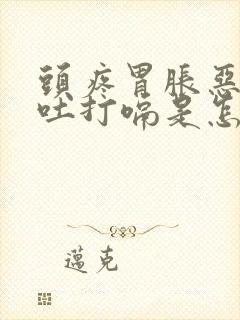 頭疼胃脹惡
吐打嗝是怎
邁克